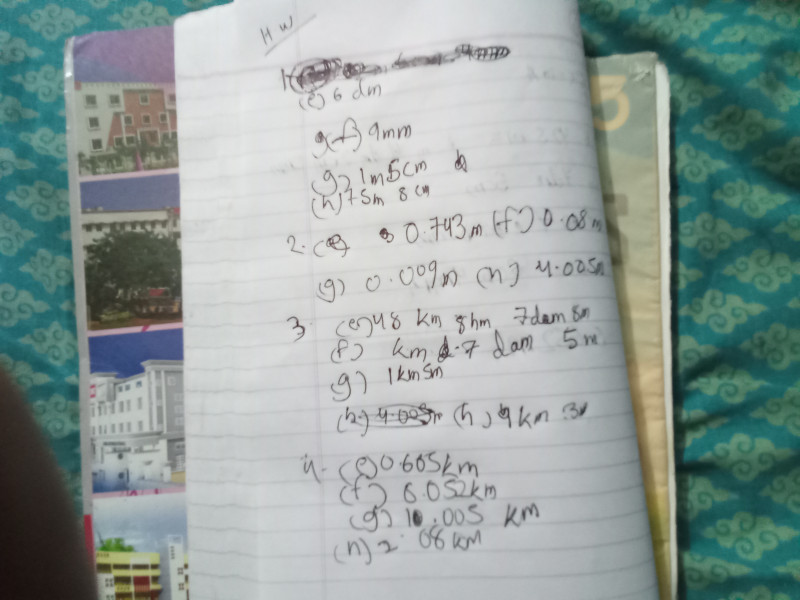 HW
1
(e) 6 dm
(f) 9mm
(g) 1m 5cm
(h) 75m 8cm
2. (e) 0.743m (f) 0.08m
(g) 0.009m (h) 4.005m
3. (e) 48 km 8hm 7dam 8m
(f) km 7 dam 5m
(g) 1km 5m
(h) 4km 3m
4. (e) 0.605km
(f) 6.052km
(g) 10.005 km
(h) 2.08km
3